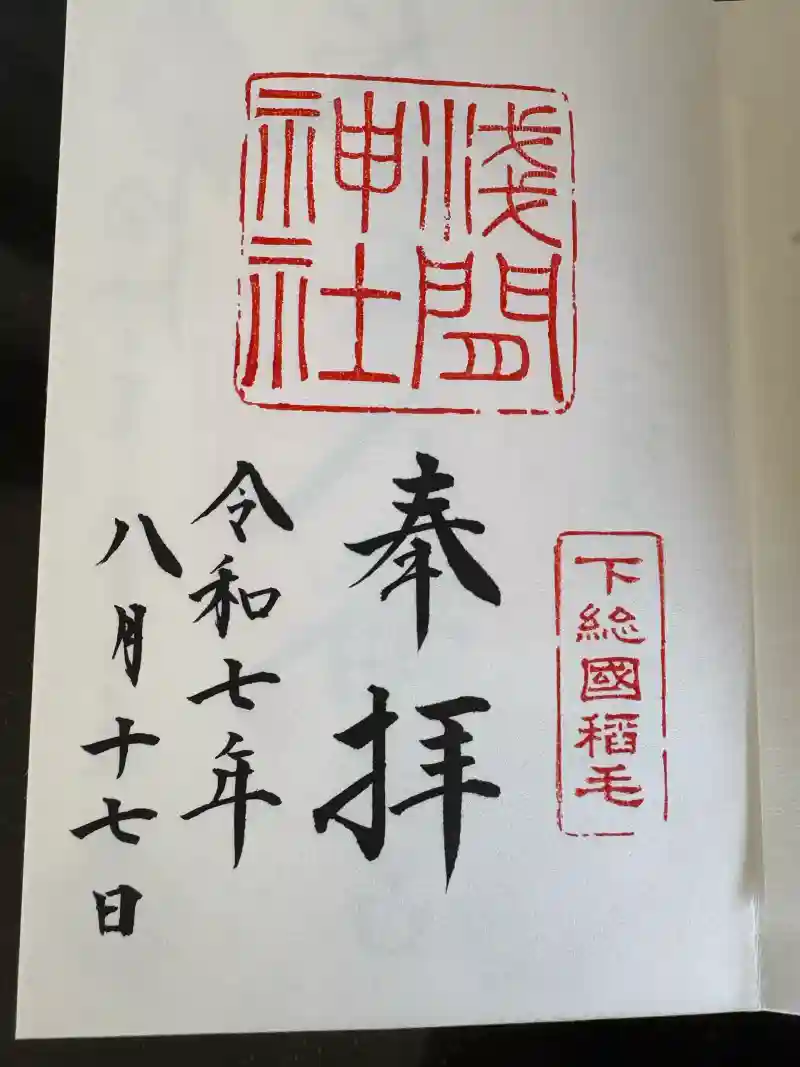 浅間
神社
下総國稻毛
奉拝
令和七年
八月十七日